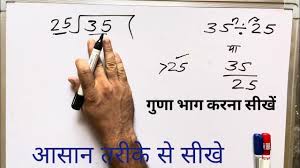 25√35
35÷25
या
>25
35/25
गुणा भाग करना सीखें
आसान तरीके से सीखे